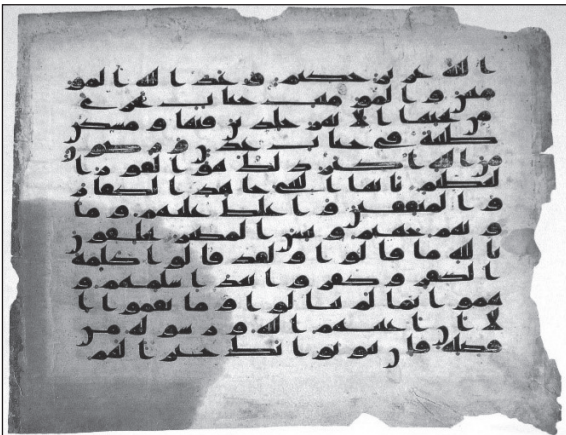 الله عزيز حكيم وعد الله المو
منين والمومنت جنات تجري
من تحتها الانهر خلدين فيها ومسكن
طيبة في جنات عدن ورضون
من الله اكبر ذلك هو الفوز ا
لعظيم يايها النبي جاهد الكفار
والمنفقين واغلظ عليهم وما
ويهم جهنم وبيس المصير يحلفون
بالله ما قالوا ولقد قالوا كلمة
الكفر وكفروا بعد اسلمهم و
هموا بما لم ينالوا وما نقموا ا
لا ان اغنيهم الله ورسوله من
فضله فان يتوبوا يك خيرا لهم